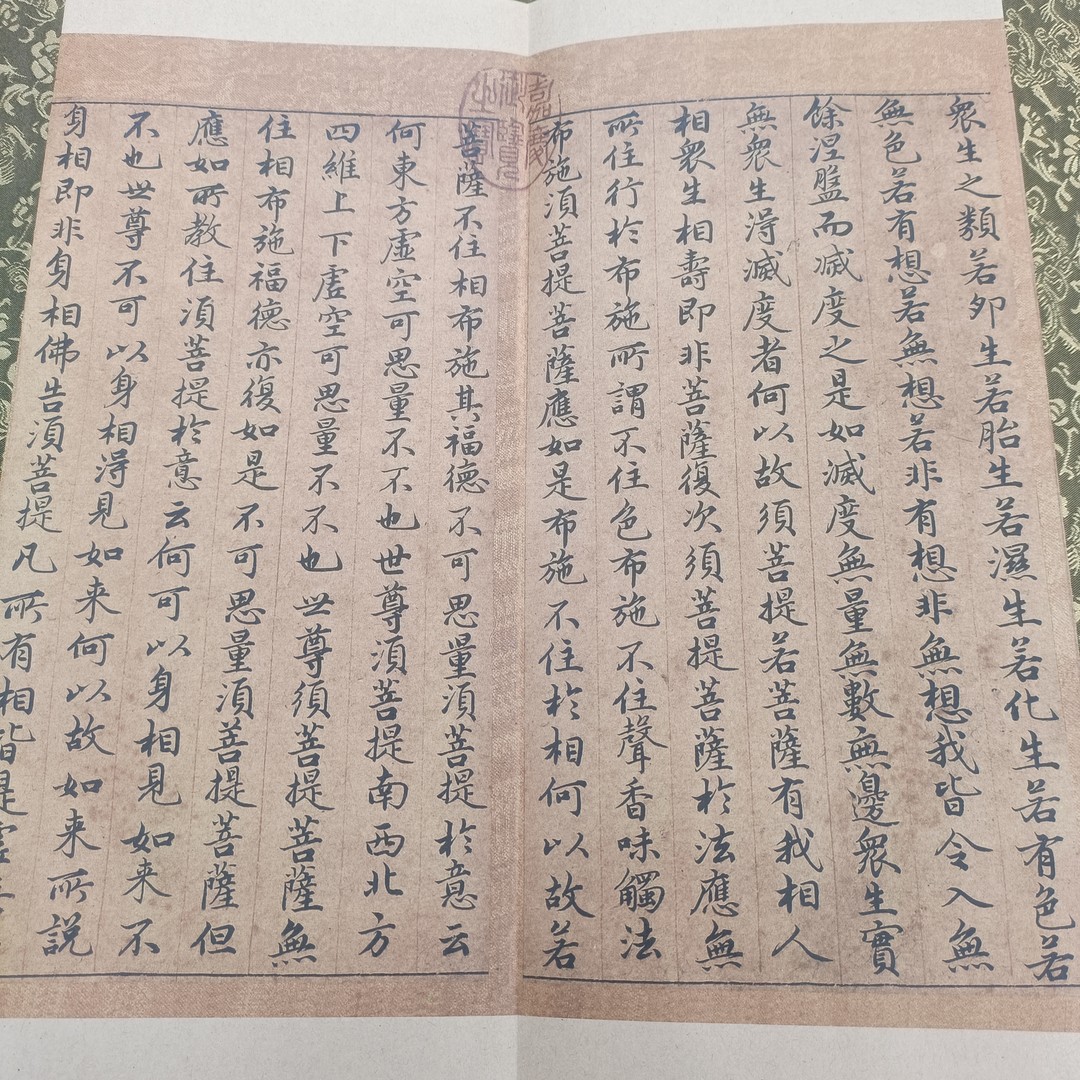 衆生之類若卵生若胎生若濕生若化生若有色若
無色若有想若無想若非有想非無想我皆令入無
餘涅槃而滅度之是如滅度無量無數無邊衆生實
無衆生得滅度者何以故須菩提若菩薩有我相人
相衆生相壽即非菩薩復次須菩提菩薩於法應無
所住行於布施所謂不住色布施不住聲香味觸法
布施須菩提菩薩應如是布施不住於相何以故若
菩薩不住相布施其福德不可思量須菩提於意云
何東方虛空可思量不不也世尊須菩提南西北方
四維上下虛空可思量不不也世尊須菩提菩薩無
住相布施福德亦復如是不可思量須菩提菩薩但
應如所教住須菩提於意云何可以身相見如来不
不也世尊不可以身相得見如来何以故如来所説
身相即非身相佛告須菩提凡所有相皆是虛